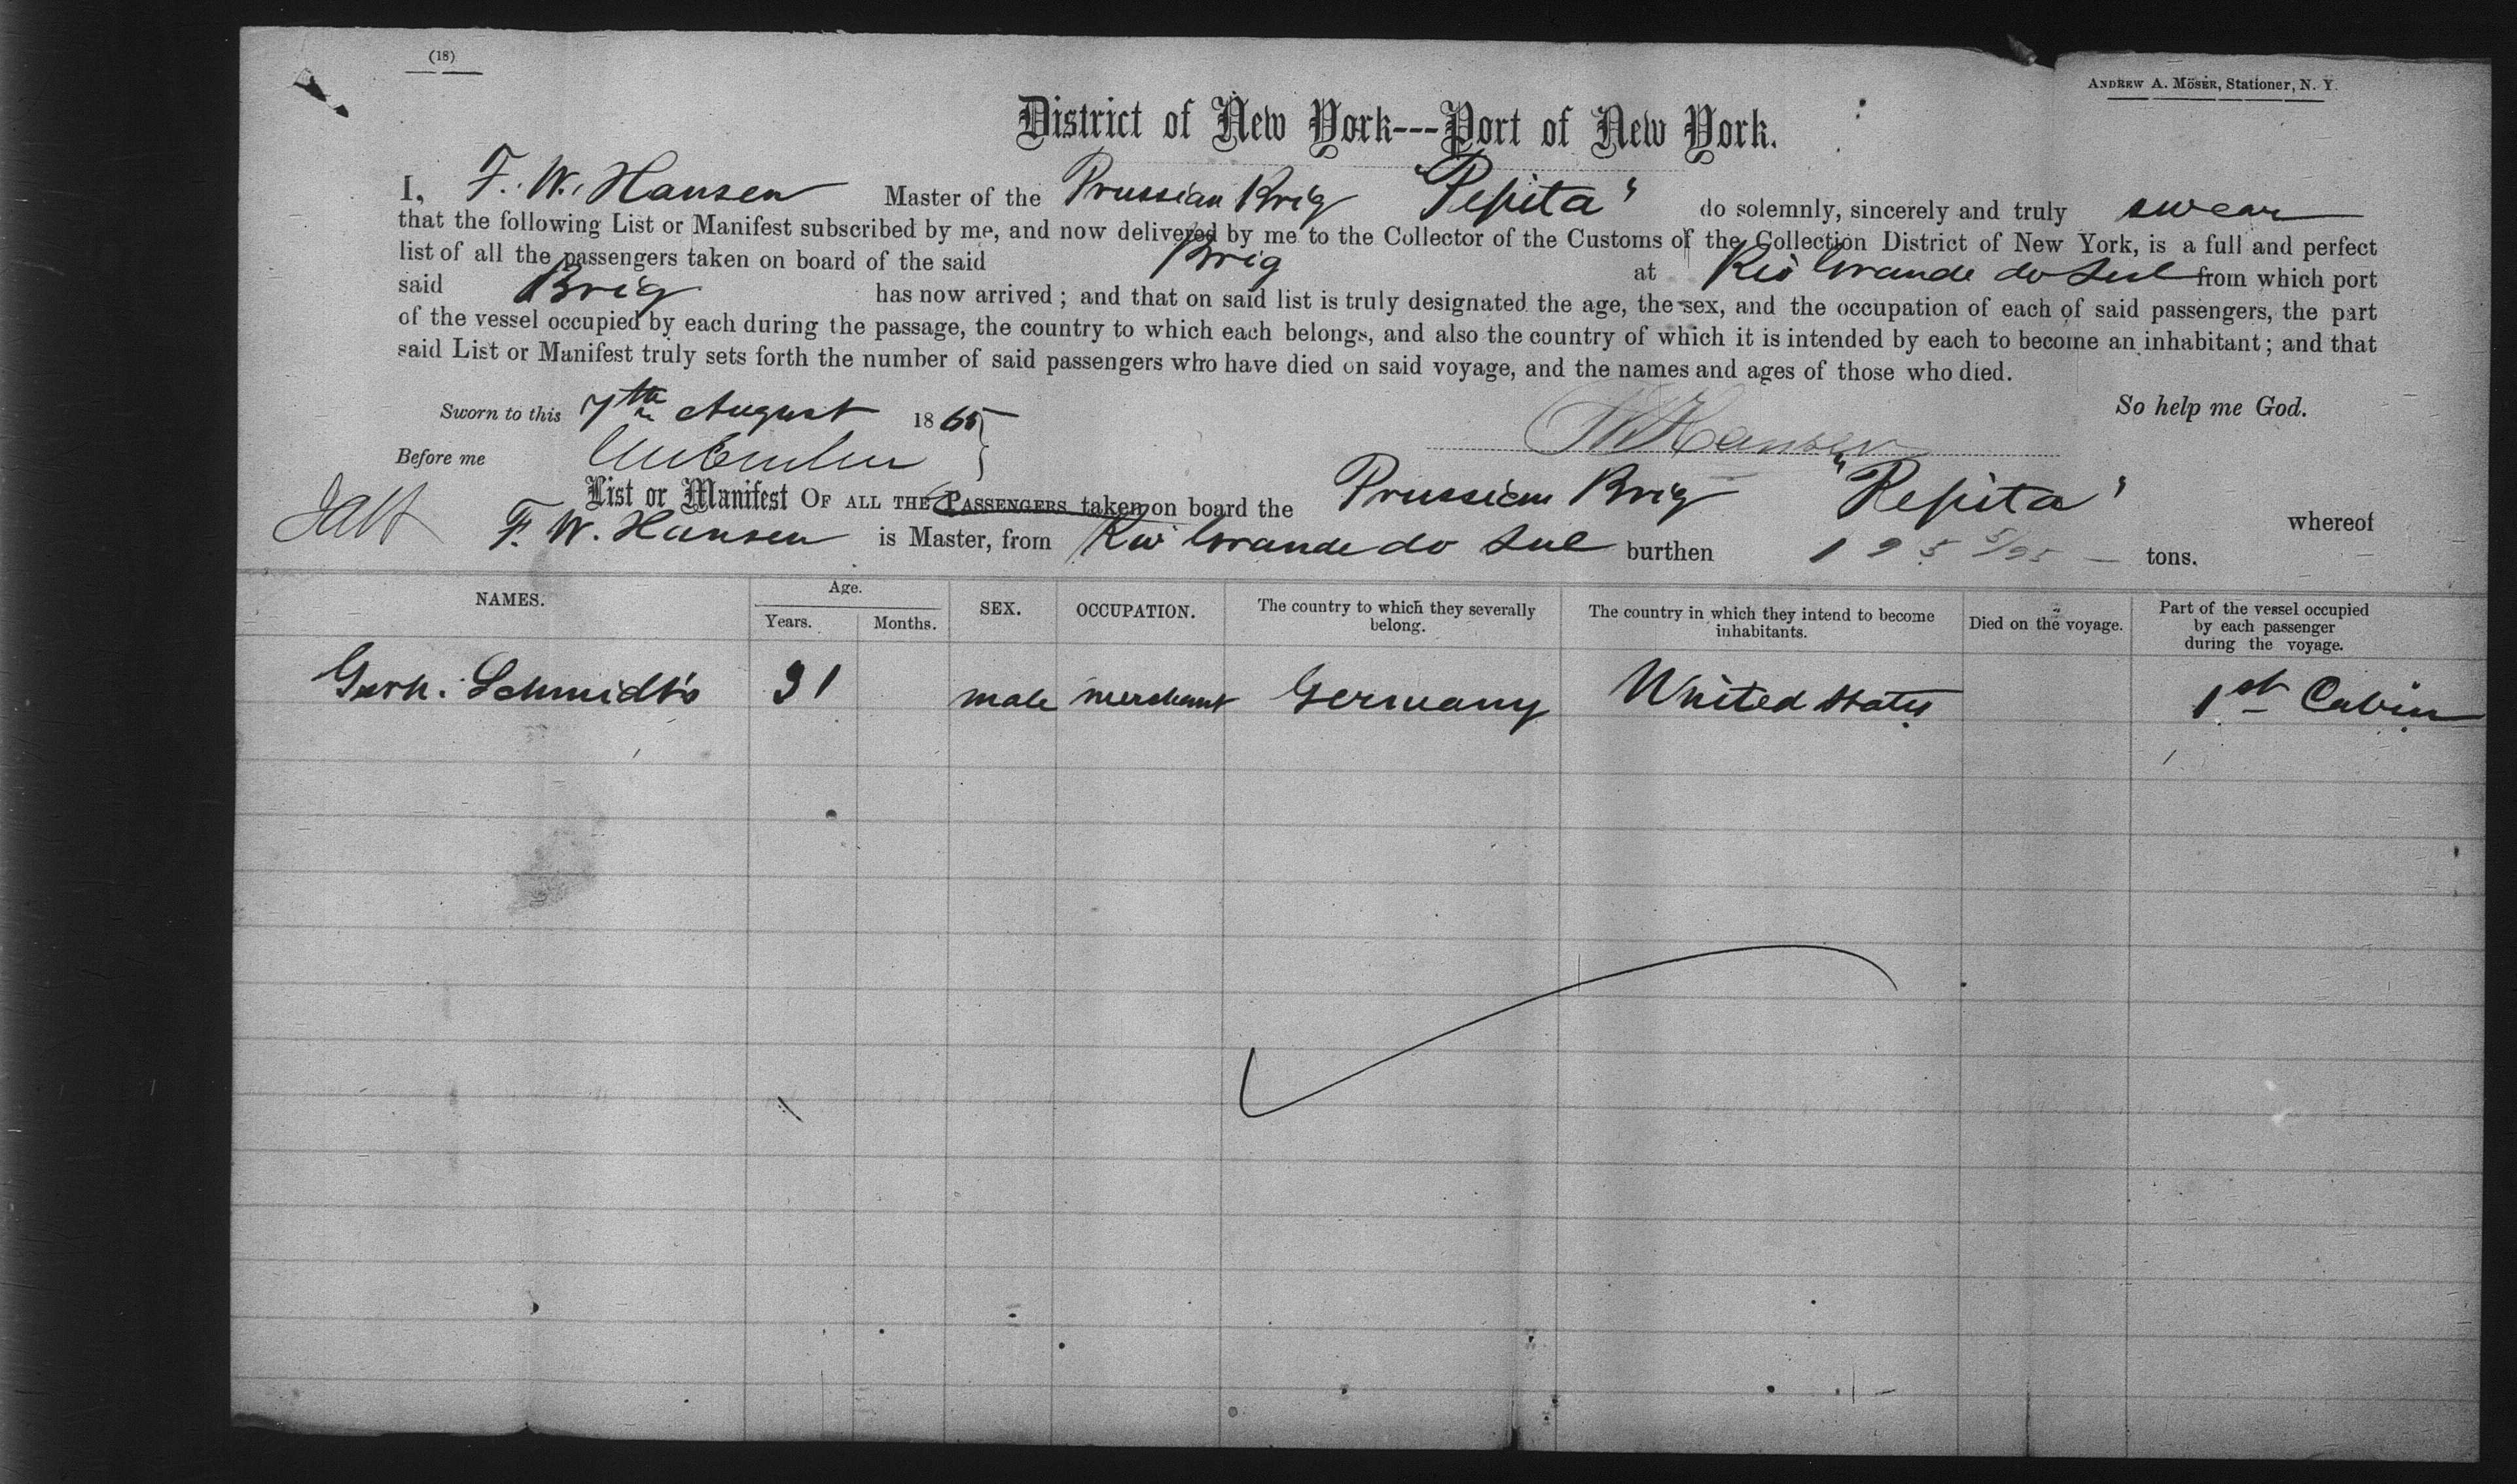 (18)
ANDREW A. MÖSER, Stationer, N. Y.
District of New York---Port of New York.
I, F. W. Hansen Master of the Prussian Brig "Pepita" do solemnly, sincerely and truly swear
that the following List or Manifest subscribed by me, and now delivered by me to the Collector of the Customs of the Collection District of New York, is a full and perfect
list of all the passengers taken on board of the said Brig at Rio Grande do Sul from which port
said Brig has now arrived; and that on said list is truly designated the age, the sex, and the occupation of each of said passengers, the part
of the vessel occupied by each during the passage, the country to which each belongs, and also the country of which it is intended by each to become an inhabitant; and that
said List or Manifest truly sets forth the number of said passengers who have died on said voyage, and the names and ages of those who died.
Sworn to this 7th August 1865
So help me God.
Before me
FW Hansen
List or Manifest OF ALL THE PASSENGERS taken on board the Prussian Brig "Pepita" whereof
F. W. Hansen is Master, from Rio Grande do Sul burthen 195 5/95 tons.
NAMES. Age. Years. Months. SEX. OCCUPATION. The country to which they severally belong. The country in which they intend to become inhabitants. Died on the voyage. Part of the vessel occupied by each passenger during the voyage.
Gerh. Schmidt's 31 male merchant Germany United States 1st Cabin